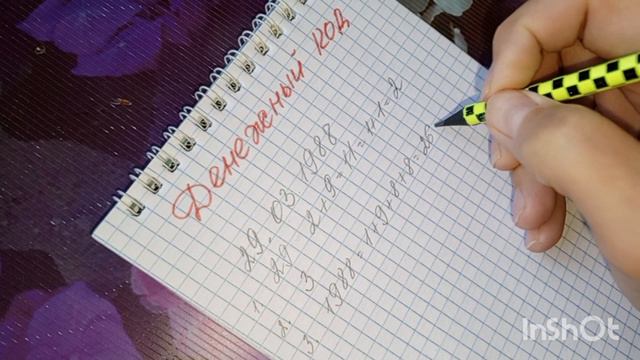 Денежный код
29. 03. 1988
1. 29 2+9=11=1+1=2
2. 3
3. 1988=1+9+8+8=26
InShOt